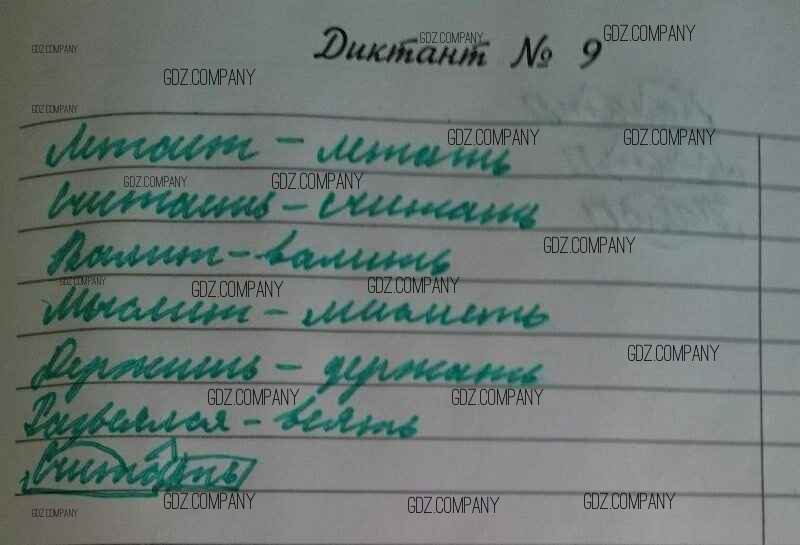 GDZ.COMPANY GDZ.COMPANY GDZ.COMPANY
Диктант № 9
GDZ.COMPANY
GDZ.COMPANY
GDZ.COMPANY GDZ.COMPANY
– летать
GDZ.COMPANY GDZ.COMPANY
– считать
GDZ.COMPANY
Валит – валить
GDZ.COMPANY GDZ.COMPANY GDZ.COMPANY
Мыслит –
GDZ.COMPANY
Держишь – держать
GDZ.COMPANY GDZ.COMPANY
Развеялся – веять
Считать
GDZ.COMPANY GDZ.COMPANY GDZ.COMPANY
GDZ.COMPANY